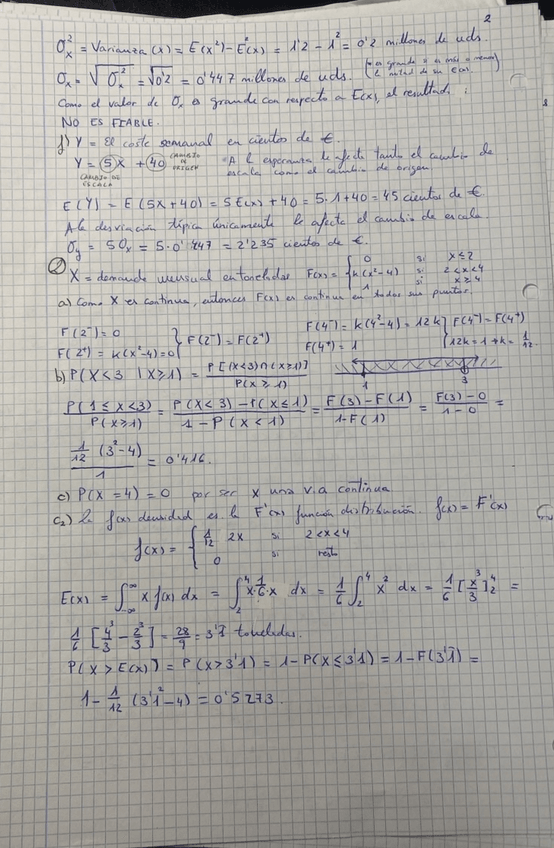 2
σx² = Varianza (x) = E(x²) - E²(x) = 1'2 - 1² = 0'2 millones de uds.
σx = √σx² = √0'2 = 0'447 millones de uds. (es grande si es más o menos la mitad de su E(x))
Como el valor de σx es grande con respecto a E(x), el resultado
NO ES FIABLE.
f) Y = El coste semanal en cientos de €.
Y = 5x + 40 CAMBIO DE ORIGEN *A la esperanza le afecta tanto el cambio de
CAMBIO DE ESCALA escala como el cambio de origen
E(Y) = E(5X+40) = 5E(x) + 40 = 5·1+40 = 45 cientos de €.
A la desviación típica únicamente le afecta el cambio de escala.
σy = 5σx = 5·0'447 = 2'235 cientos de €.
② X = demanda mensual en toneladas F(x) = { 0 si x≤2
k(x²-4) si 2<x<4
1 si x≥4
a) Como X es continua, entonces F(x) es continua en todos sus puntos.
F(2⁻) = 0
F(2⁺) = k(x²-4) = 0 } F(2⁻) = F(2⁺)
F(4⁻) = k(4²-4) = 12k
F(4⁺) = 1 } F(4⁻) = F(4⁺)
12k = 1 → k = 1/12
b) P(X<3 | X≥1) = P[(X<3)∩(X≥1)] / P(X≥1)
1 3
P(1≤X<3) / P(X≥1) = P(X<3) - P(X≤1) / 1 - P(X<1) = F(3) - F(1) / 1 - F(1) = F(3) - 0 / 1 - 0 =
1/12 (3²-4) / 1 = 0'416.
c) P(X=4) = 0 por ser X una v.a continua
c₂) la f(x) densidad es la F'(x) función distribución. f(x) = F'(x)
f(x) = { 1/12 2x si 2<x<4
0 si resto
E(x) = ∫₋∞^∞ x f(x) dx = ∫₂⁴ x·1/6·x dx = 1/6 ∫₂⁴ x² dx = 1/6 [x³/3]₂⁴ =
1/6 [4³/3 - 2³/3] = 28/9 = 3'1 toneladas.
P(X > E(x)) = P(X>3'1) = 1 - P(X≤3'1) = 1 - F(3'1) =
1 - 1/12 (3'1² - 4) = 0'5273.